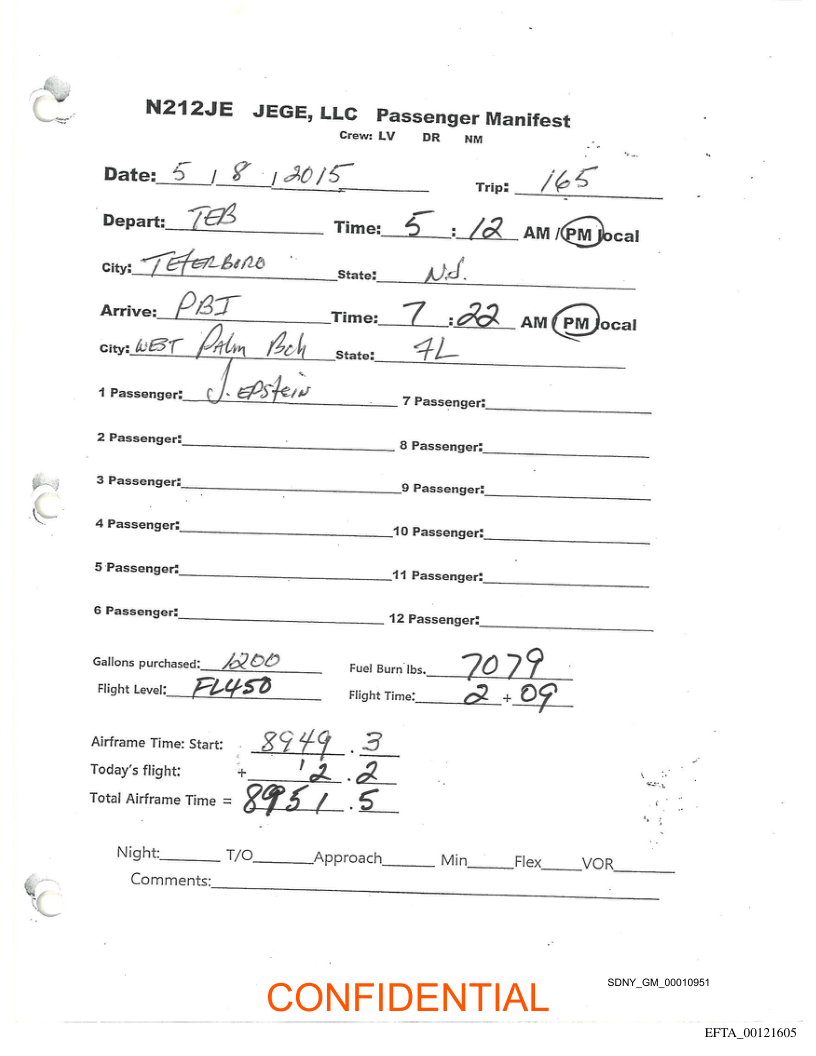 N212JE JEGE, LLC Passenger Manifest
Crew: LV DR NM
Date: 5 / 8 / 2015
Trip: 165
Depart: TEB Time: 5 : 12 AM / PM local
City: TETERBORO State: N.J.
Arrive: PBI Time: 7 : 22 AM / PM local
City: WEST PALM Bch State: FL
1 Passenger: J. EPStEIN 7 Passenger:
2 Passenger: 8 Passenger:
3 Passenger: 9 Passenger:
4 Passenger: 10 Passenger:
5 Passenger: 11 Passenger:
6 Passenger: 12 Passenger:
Gallons purchased: 1200 Fuel Burn lbs. 7079
Flight Level: FL450 Flight Time: 2 + 09
Airframe Time: Start: 8949 . 3
Today's flight: + 2 . 2
Total Airframe Time = 8951 . 5
Night: T/O Approach Min Flex VOR
Comments:
SDNY_GM_00010951
CONFIDENTIAL
EFTA_00121605